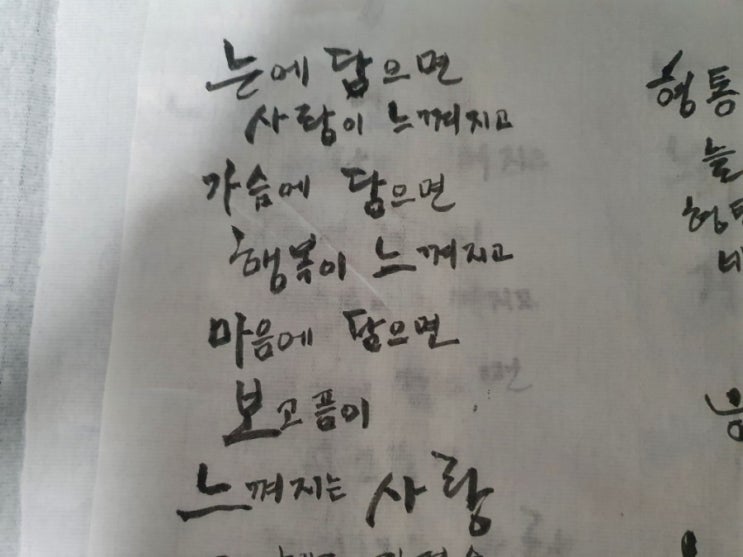 눈에 담으면
사랑이 느껴지고
가슴에 담으면
행복이 느껴지고
마음에 담으면
보고픔이
느껴지는 사랑
형통
늘